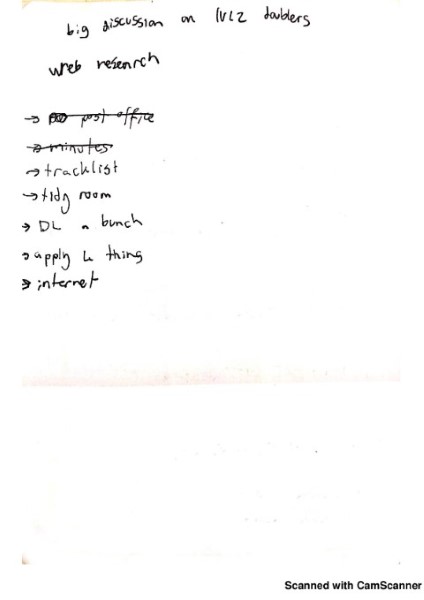 big discussion on lvl2 doublers
web research
→ post office
→ minutes
→ tracklist
→ tidy room
→ DL a bunch
→ apply 4 thing
→ internet
Scanned with CamScanner